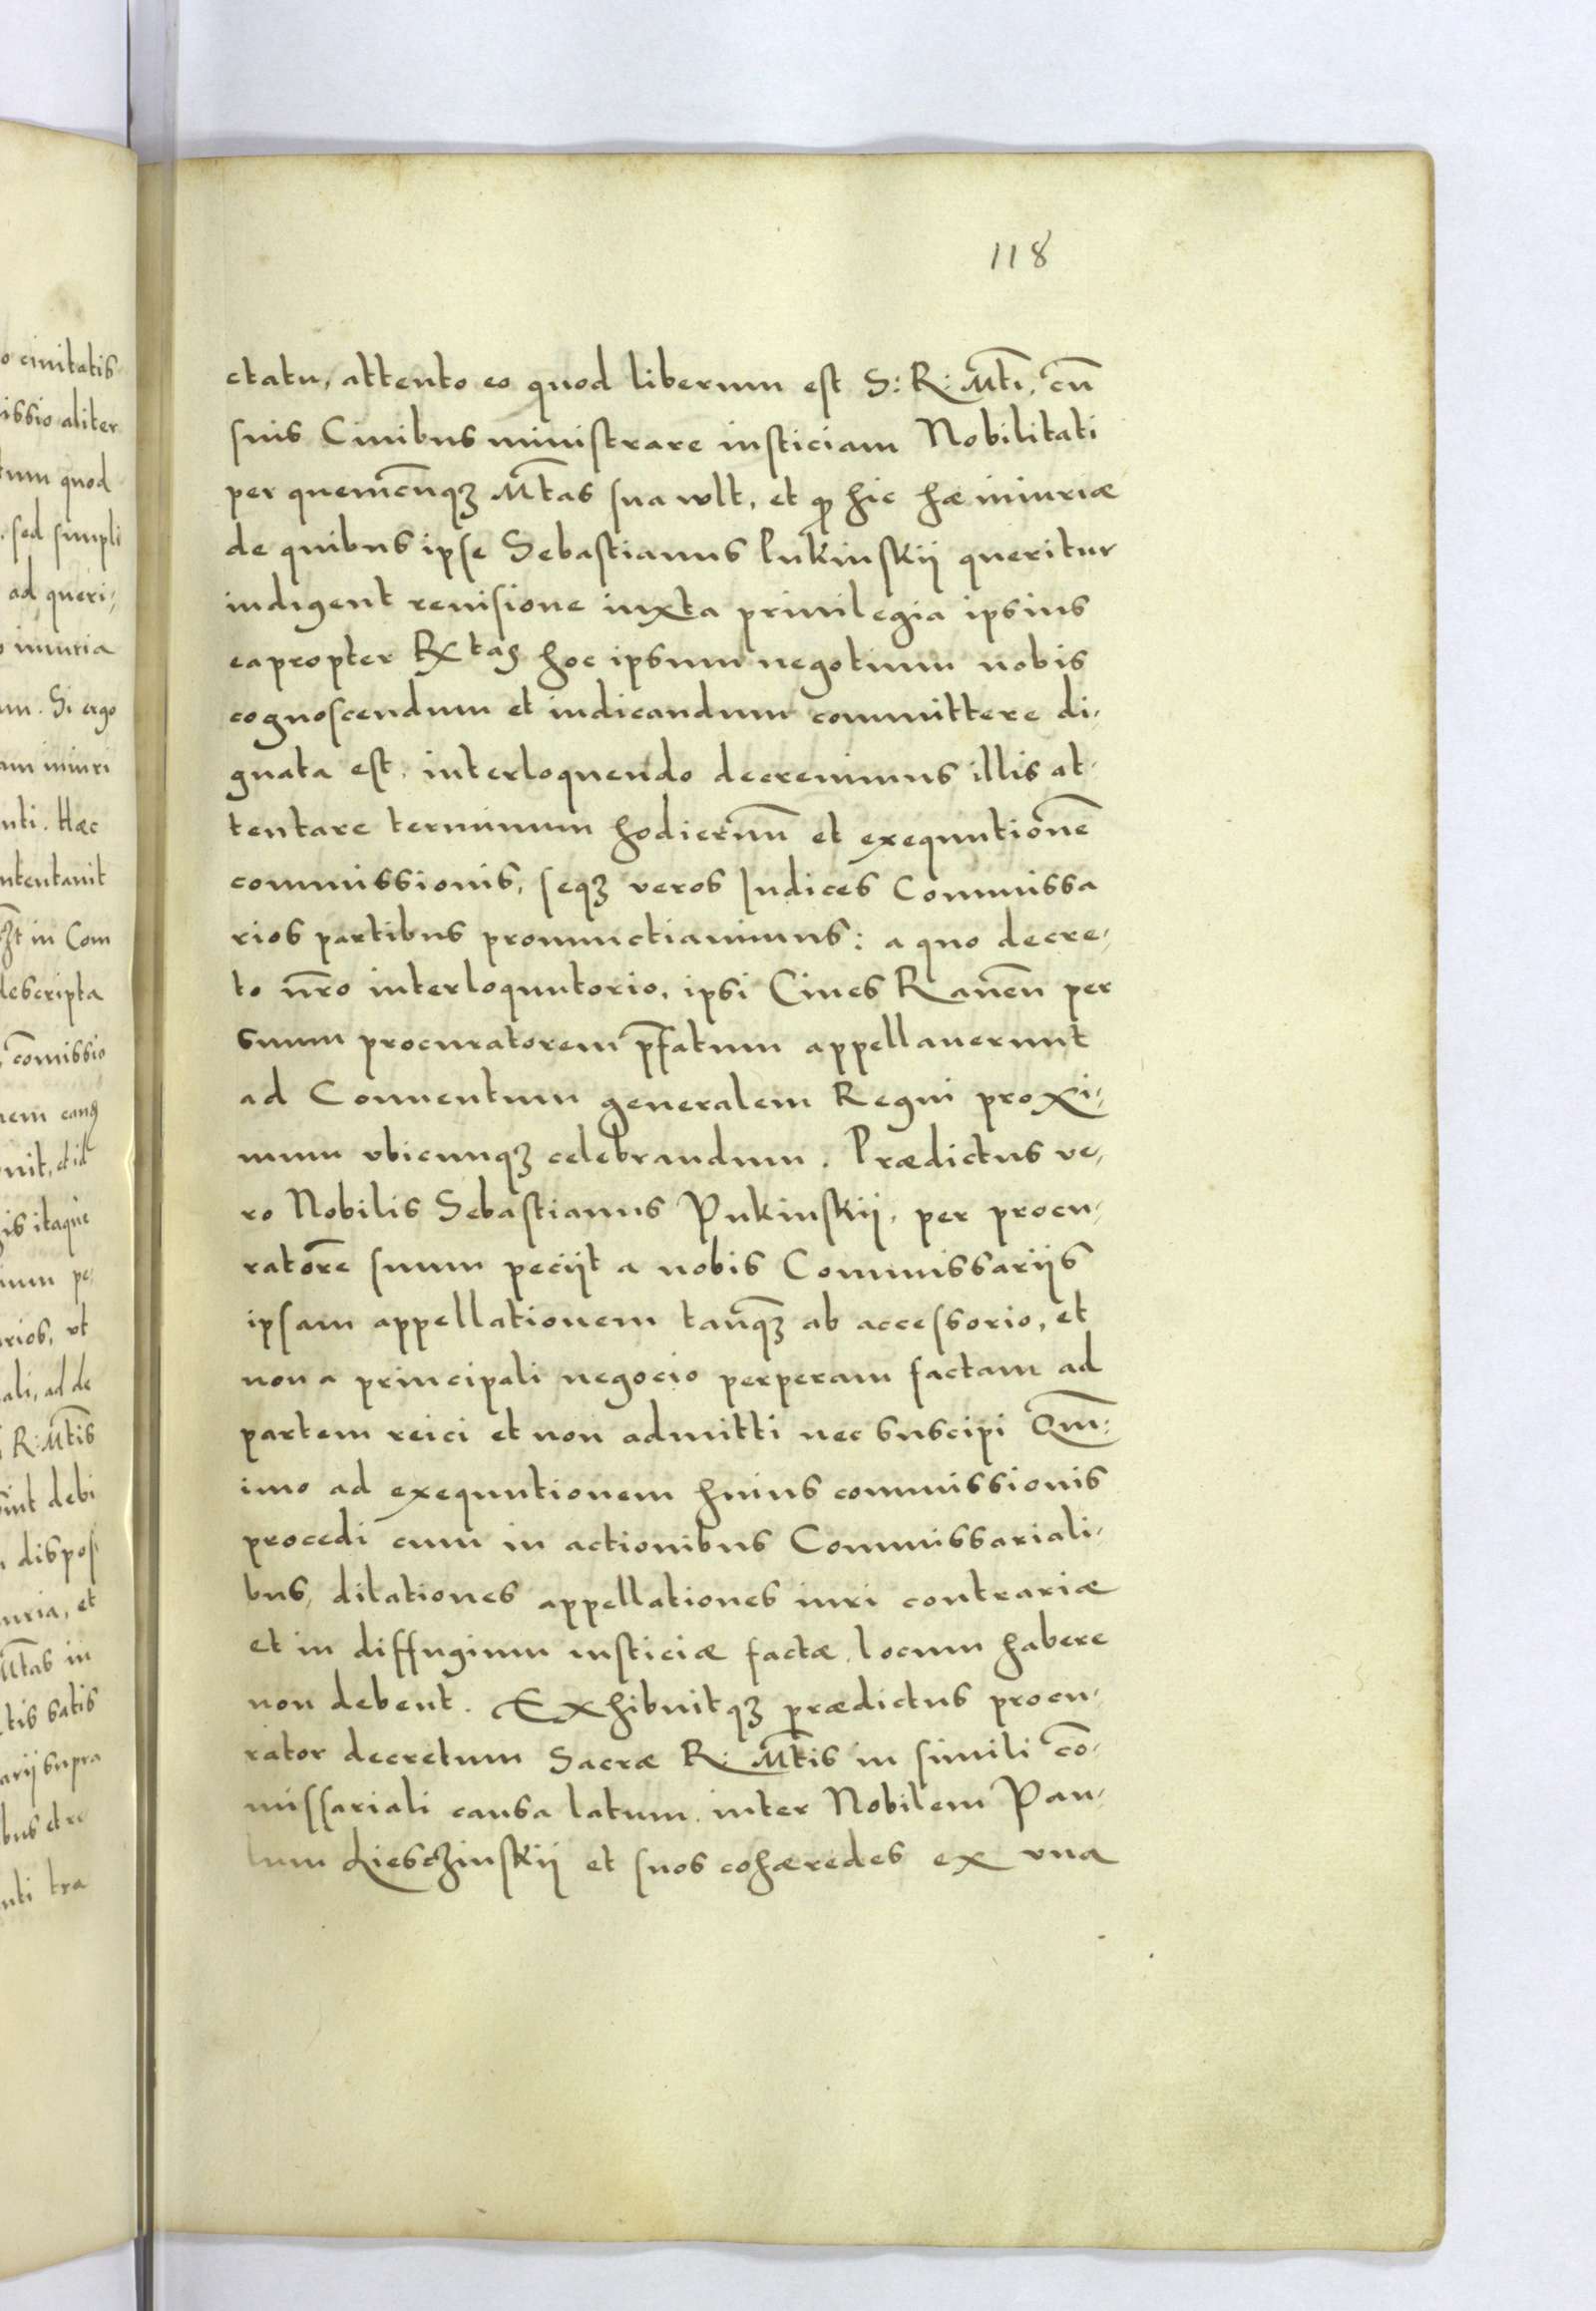 118
ctatu, attento eo quod liberum est S: R: Mti, cū
suis Ciuibus ministrare iusticiam Nobilitati
per quemcūqꝫ Mtas sua vult, et ꝙ hic hæ iniuriæ
de quibus ipse Sebastianus Pukinskij queritur
indigent reuisione iuxta priuilegia ipsius
eapropter Rx tas hoc ipsum negotium nobis
cognoscendum et iudicandum committere di,
gnata est, interloquendo decreuimus illis at,
tentare terminum hodiernū et exequutionē
commissionis, seqꝫ veros Iudices Commissa
rios partibus pronunctiauimus: a quo decre,
to nr̄o interloquutorio, ipsi Ciues Rauen̄ per
suum procuratorem p̄fatum appellauerunt
ad Conuentum generalem Regni proxi,
mum vbicunqꝫ celebrandum. Prædictus ve,
ro Nobilis Sebastianus Pukinskij, per procu,
ratorē suum peciit a nobis Commissarijs
ipsam appellationem tanq̄ꝫ ab accessorio, et
non a principali negocio perperam factam ad
partem reici et non admitti nec suscipi Qm̄,
imo ad exequutionem huius commissionis
procedi cum in actionibus Commissariali,
bus, dilationes appellationes iuri contrariæ
et in diffugium iusticiæ factæ, locum habere
non debent. Exhibuitqꝫ prædictus procu,
rator decretum Sacræ R: Mtis in simili cō,
missariali causa latum inter Nobilem Pau,
lum Liesczinskij et suos cohæredes ex vna